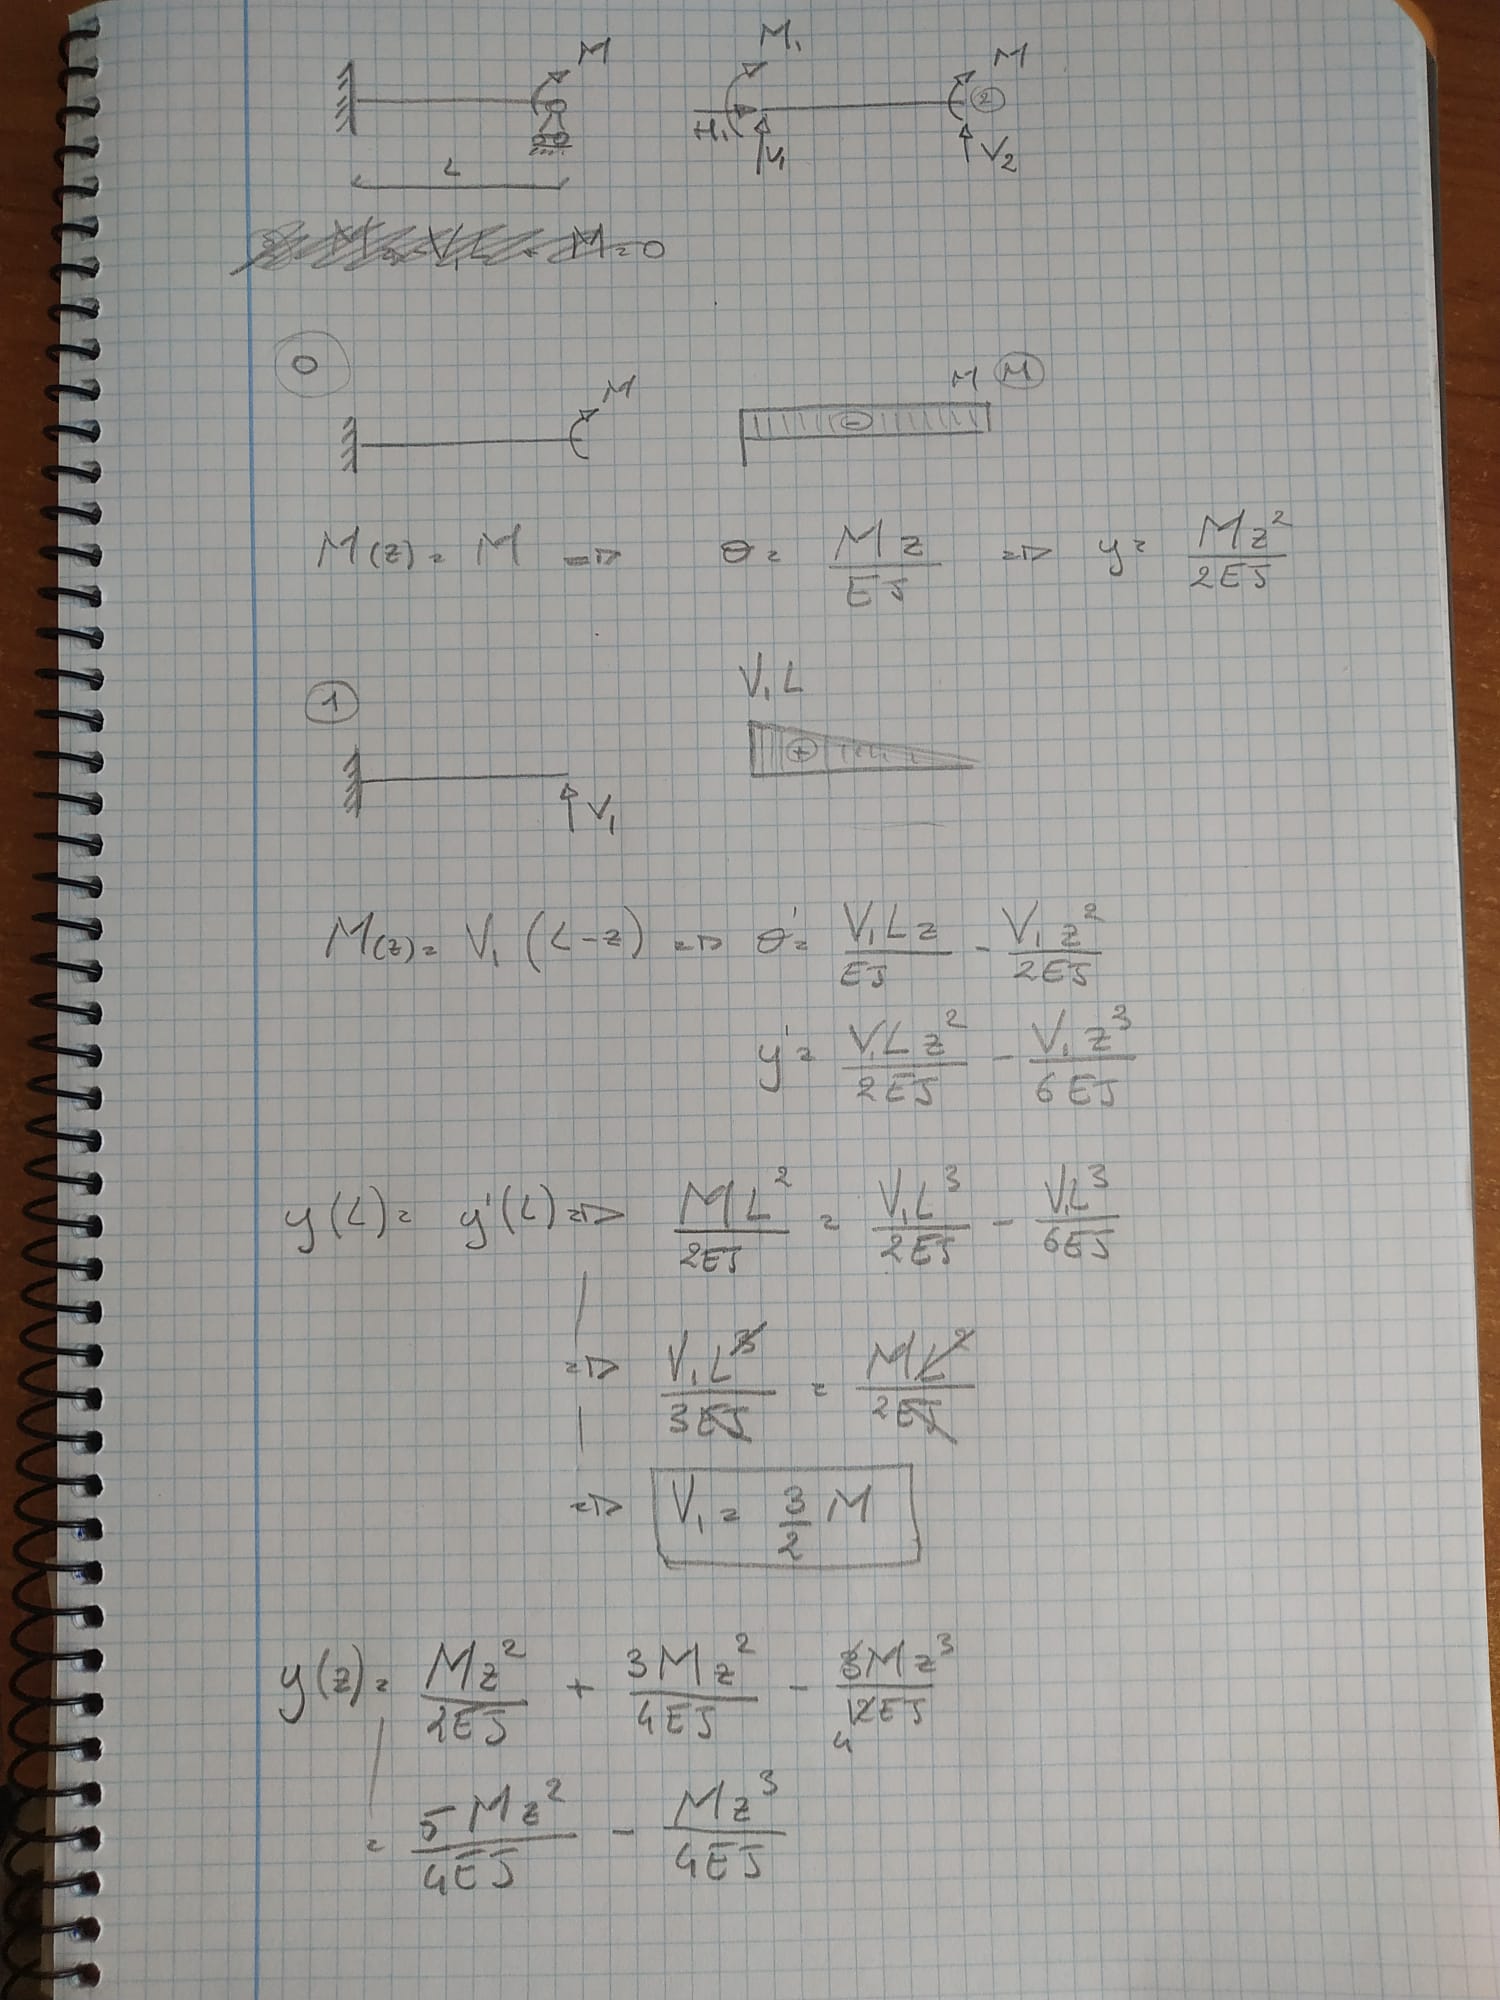 M M₁ M
H₁ V₁ V₂ 2
L
M₁ - V₁L - M = 0
0
M M M
M(z) = M => θ = Mz/EJ => y = Mz²/2EJ
1 V₁L
+
V₁
M(z) = V₁(L-z) => θ' = V₁Lz/EJ - V₁z²/2EJ
y' = V₁Lz²/2EJ - V₁z³/6EJ
y(L) = y'(L) => ML²/2EJ = V₁L³/2EJ - V₁L³/6EJ
=> V₁L³/3EJ = ML²/2EJ
=> V₁ = 3/2 M
y(z) = Mz²/2EJ + 3Mz²/4EJ - 3Mz³/12EJ 4
= 5Mz²/4EJ - Mz³/4EJ